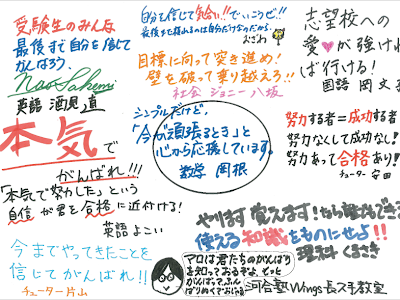 受験生のみんな
最後まで自分を信じて
がんばろう。
英語 酒見 直
自分を信じて気合い!!でいこうぜ!!
最後まで頼れるのは自分だけなのだから
おざわ
目標に向って突き進め!
壁を破って乗り越えろ!!
社会 ジョニー八坂
志望校への
愛♥が強けれ
ば行ける!
国語 岡 文
本気で
がんばれ!!!
「本気で努力した」という
自信が君を合格に近付ける!
英語 よこい
シンプルだけど、
「今が頑張るとき」と
心から応援しています。
数学 岡根
努力する者=成功する者
努力なくして成功なし!
努力あって合格あり!
チューター 安田
今までやってきたことを
信じてがんばれ!!
チューター片山
やります 覚えます!なら誰でもできる
使える知識をものにせよ!!
理科 くまさき
マロは君たちのがんばり
を知っておるぞよ。もっと
がんばって、ふん
ばりぬくでおじゃる
河合塾Wings長久手教室